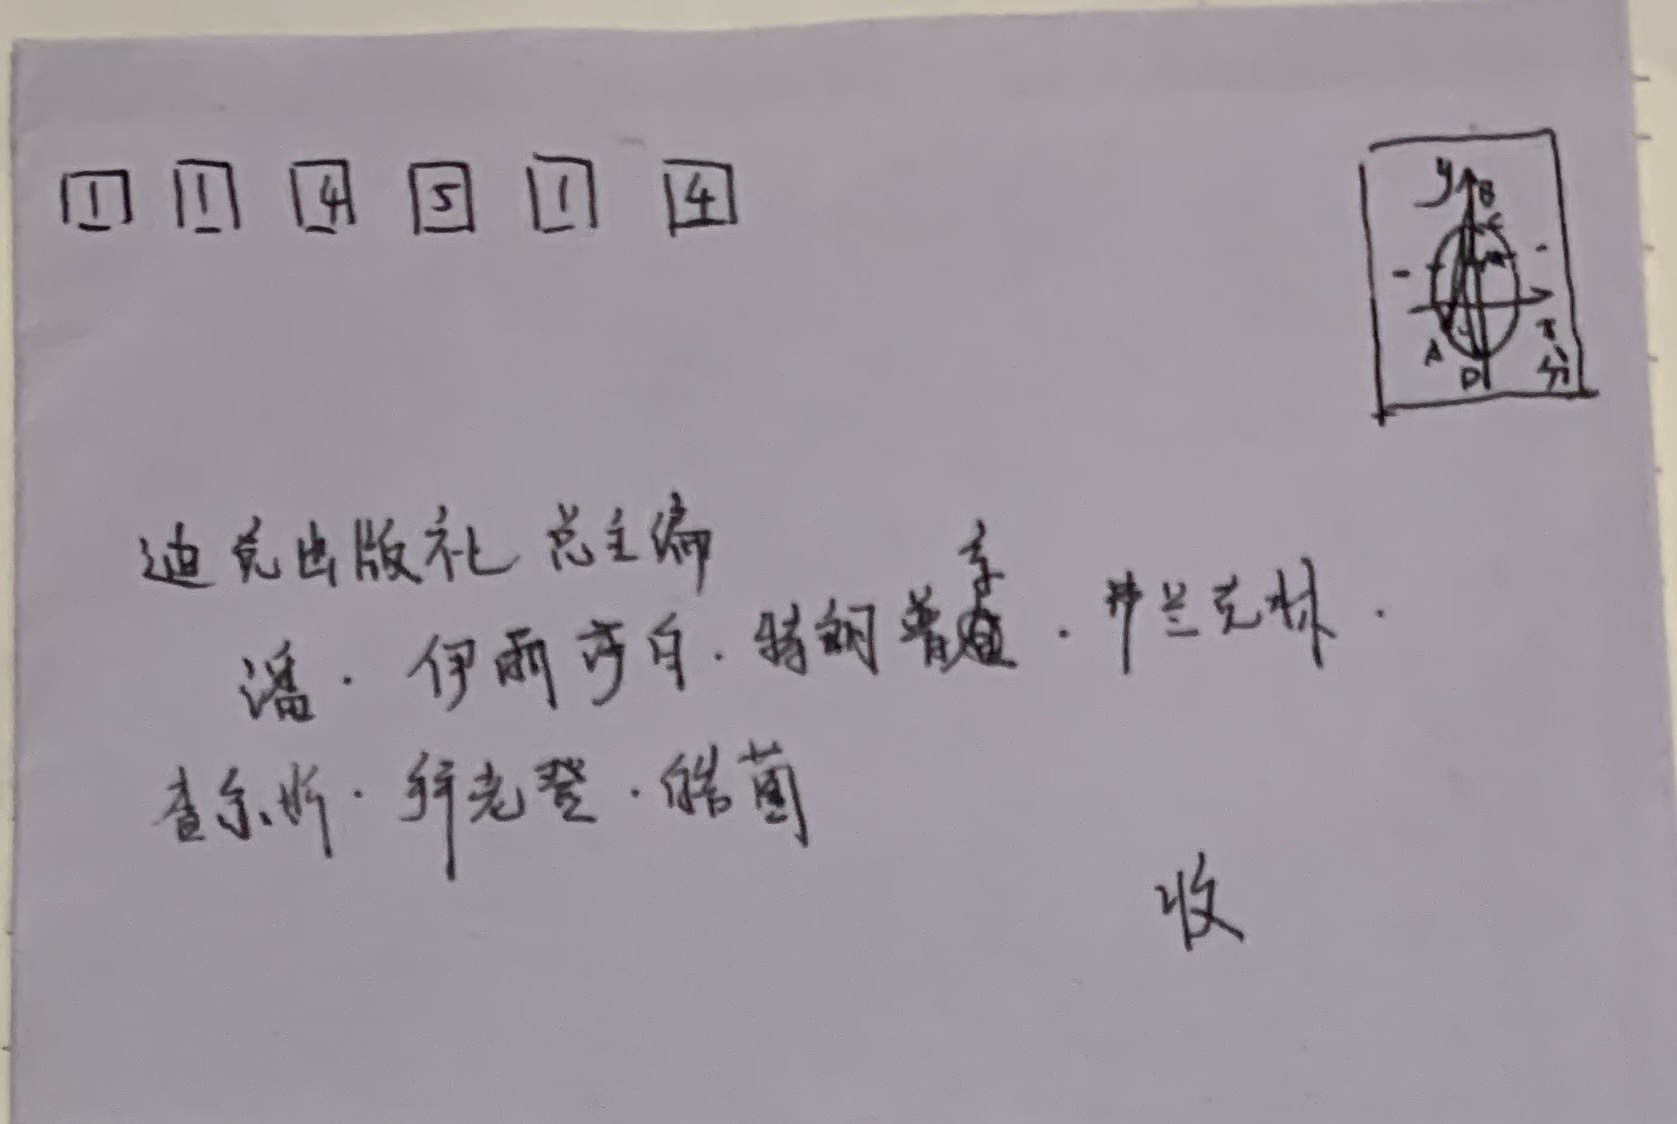 1 1 4 5 1 4
y B
C
A
D
迪克出版社 总主编
潘·伊丽莎白·特朗普·弗兰克林·
查尔斯·拜老登·皓茵
收